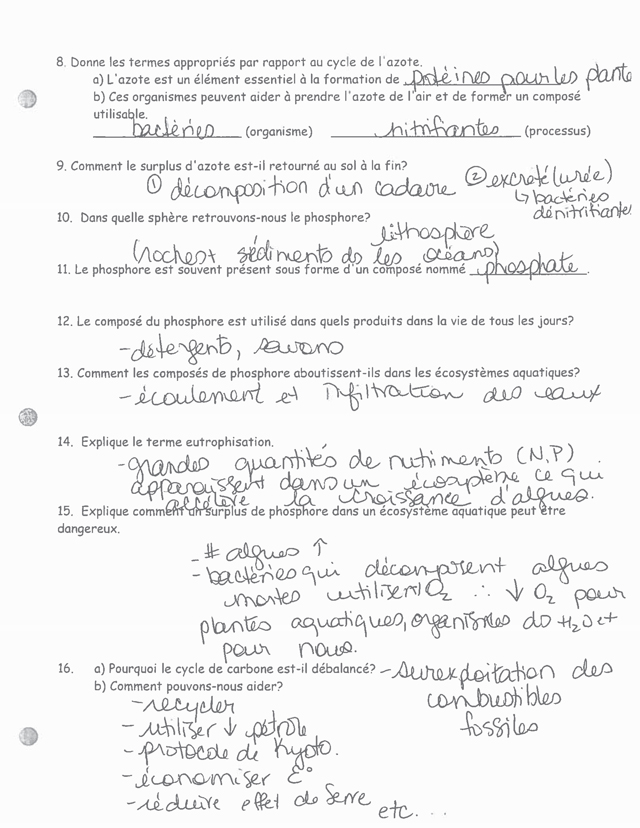 8. Donne les termes appropriés par rapport au cycle de l'azote.
a) L'azote est un élément essentiel à la formation de protéines pour les plante
b) Ces organismes peuvent aider à prendre l'azote de l'air et de former un composé
utilisable.
bactéries (organisme) nitrifiantes (processus)
9. Comment le surplus d'azote est-il retourné au sol à la fin?
① décomposition d'un cadavre ② excrété (urée)
↳ bactéries
dénitrifiantes
10. Dans quelle sphère retrouvons-nous le phosphore?
lithosphère
(roches + sédiments ds les océans)
11. Le phosphore est souvent présent sous forme d'un composé nommé phosphate.
12. Le composé du phosphore est utilisé dans quels produits dans la vie de tous les jours?
- détergents, savons
13. Comment les composés de phosphore aboutissent-ils dans les écosystèmes aquatiques?
- écoulement et infiltration des eaux
14. Explique le terme eutrophisation.
- grandes quantités de nutriments (N,P)
apparaissent dans un écosystème ce qui
accélère la croissance d'algues.
15. Explique comment un surplus de phosphore dans un écosystème aquatique peut être
dangereux.
- # algues ↑
- bactéries qui décomposent algues
mortes utilisent O₂ ∴ ↓ O₂ pour
plantes aquatiques, organismes ds H₂O et
pour nous.
16. a) Pourquoi le cycle de carbone est-il débalancé? - surexploitation des
combustibles
fossiles
b) Comment pouvons-nous aider?
- recycler
- utiliser ↓ pétrole
- protocole de Kyoto.
- économiser É°
- réduire effet de serre
etc...